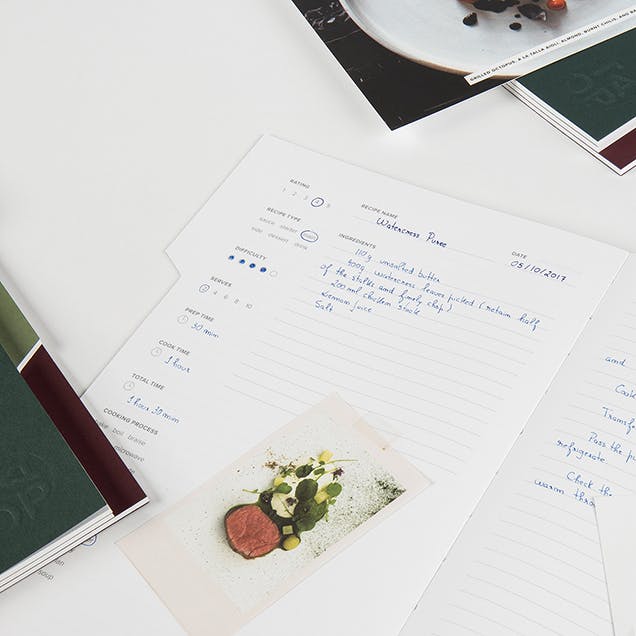 GRILLED OCTOPUS, A LA TALLA AIOLI, ALMOND, BURNT CHILIS, AND
RATING
1 2 3 4 5
RECIPE NAME
Watercress Puree
RECIPE TYPE
SIDE DESSERT
DATE
05/10/2017
INGREDIENTS
110g unsalted butter
500g watercress leaves picked (retain half
of the stalks and finely chop)
200 ml chicken stock
Lemon juice
Salt
DIFFICULTY
SERVES
2 4 6 8 10
PREP TIME
30 min
COOK TIME
1 hour
TOTAL TIME
1 hour 30 min
COOKING PROCESS
ke boil braise
microwave
soup
and
Cook
Transf
Pass the p
refrigerate.
Check the
warm thro